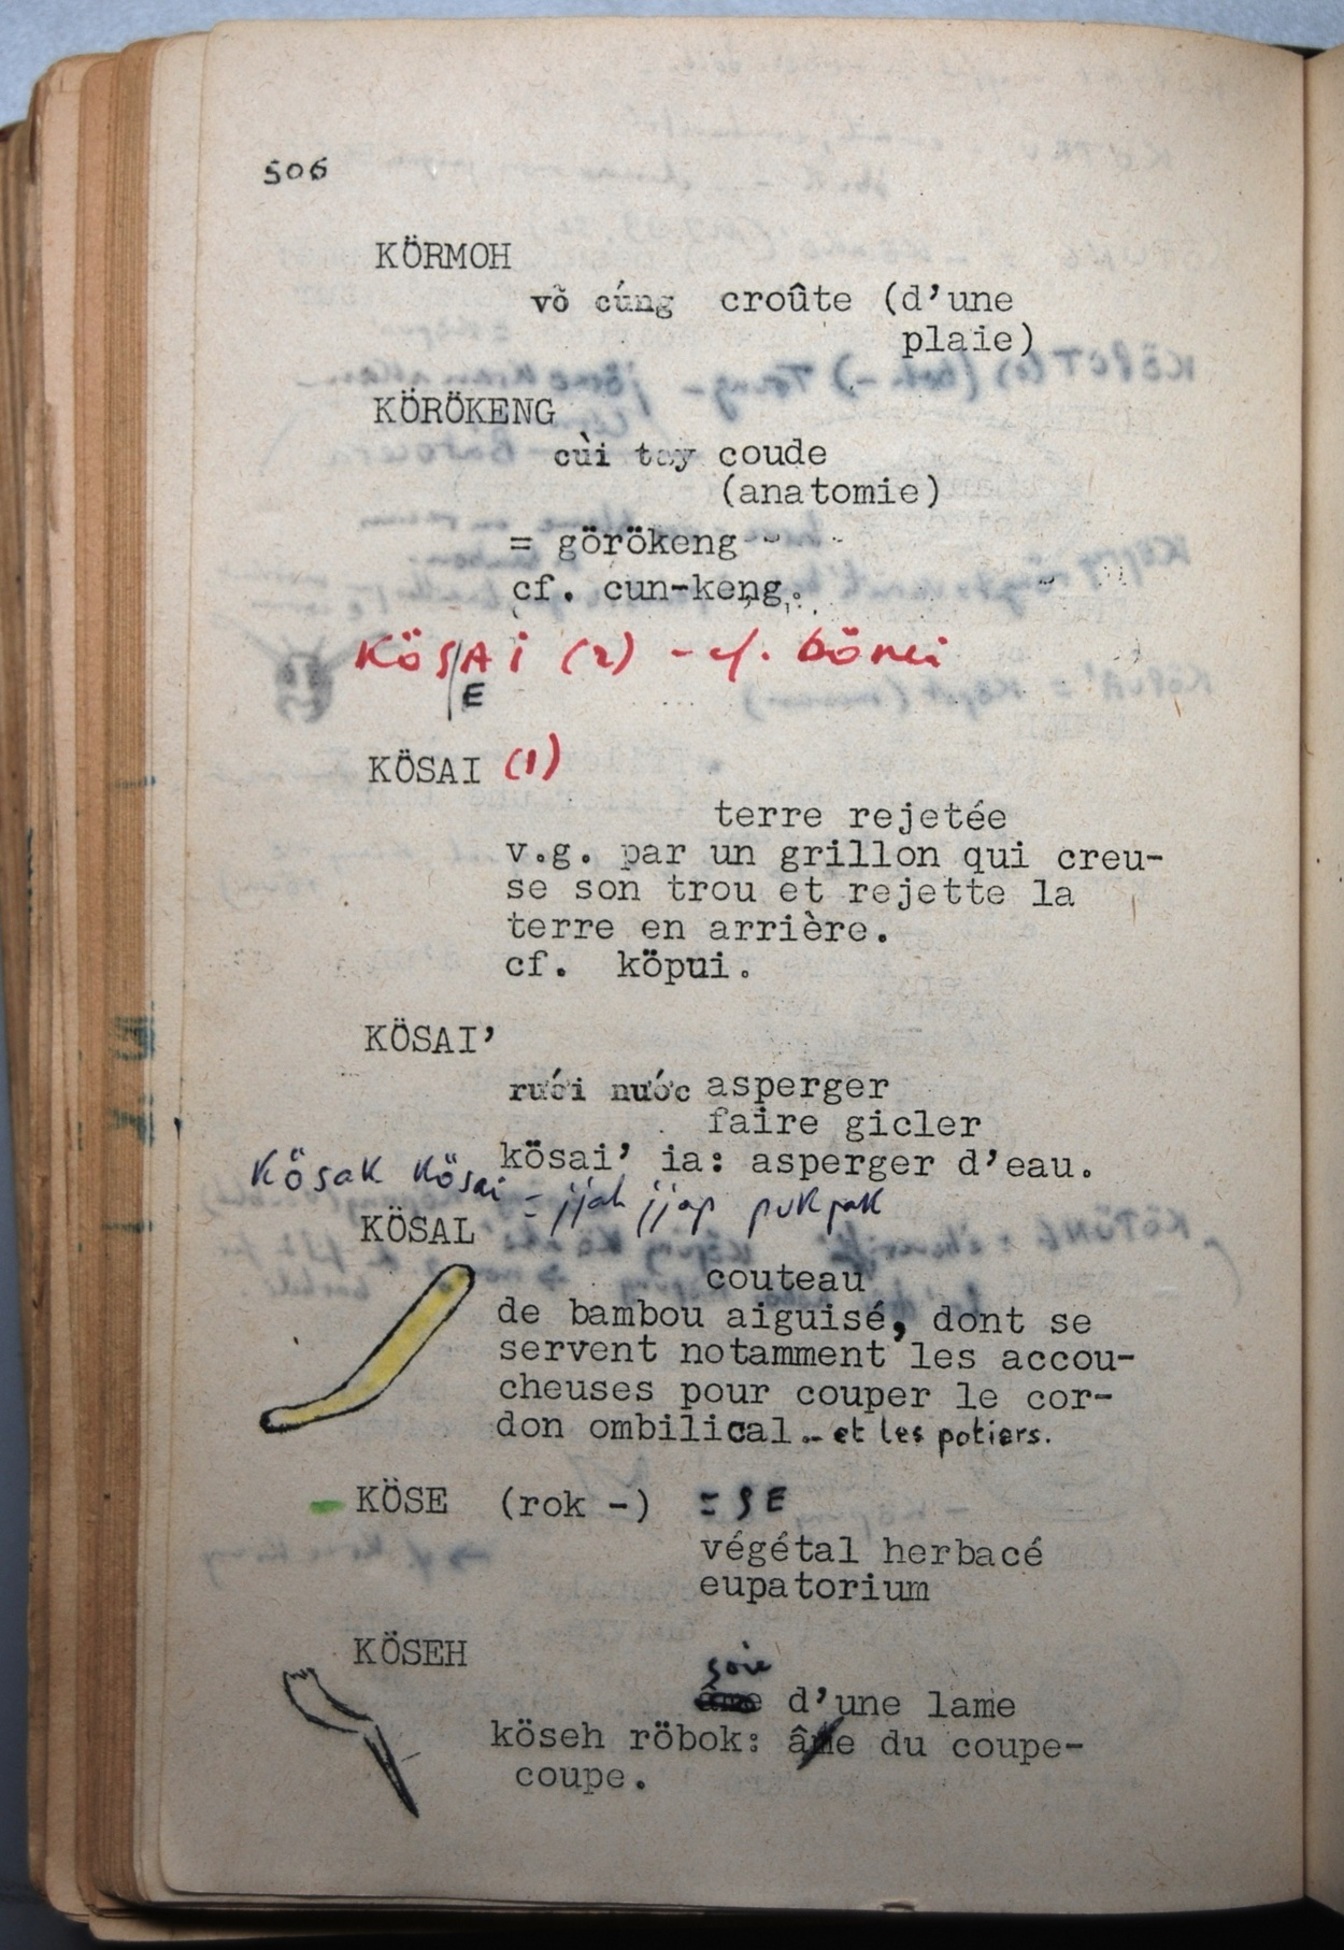 506
KÖRMOH
vỏ cứng croûte (d'une
plaie)
KÖRÖKENG
cùi tay coude
(anatomie)
= görökeng
cf. cun-keng.
KÖSAi (2) - cf. bönei
E
KÖSAI (1)
terre rejetée
v.g. par un grillon qui creu-
se son trou et rejette la
terre en arrière.
cf. köpui.
KÖSAI'
rưới nước asperger
faire gicler
kösai' ia: asperger d'eau.
Kösak Kösai = jjah jjap pukpak
KÖSAL
couteau
de bambou aiguisé, dont se
servent notamment les accou-
cheuses pour couper le cor-
don ombilical .. et les potiers.
KÖSE (rok -) = SE
végétal herbacé
eupatorium
KÖSEH
soie
d'une lame
köseh röbok: âme du coupe-
coupe.